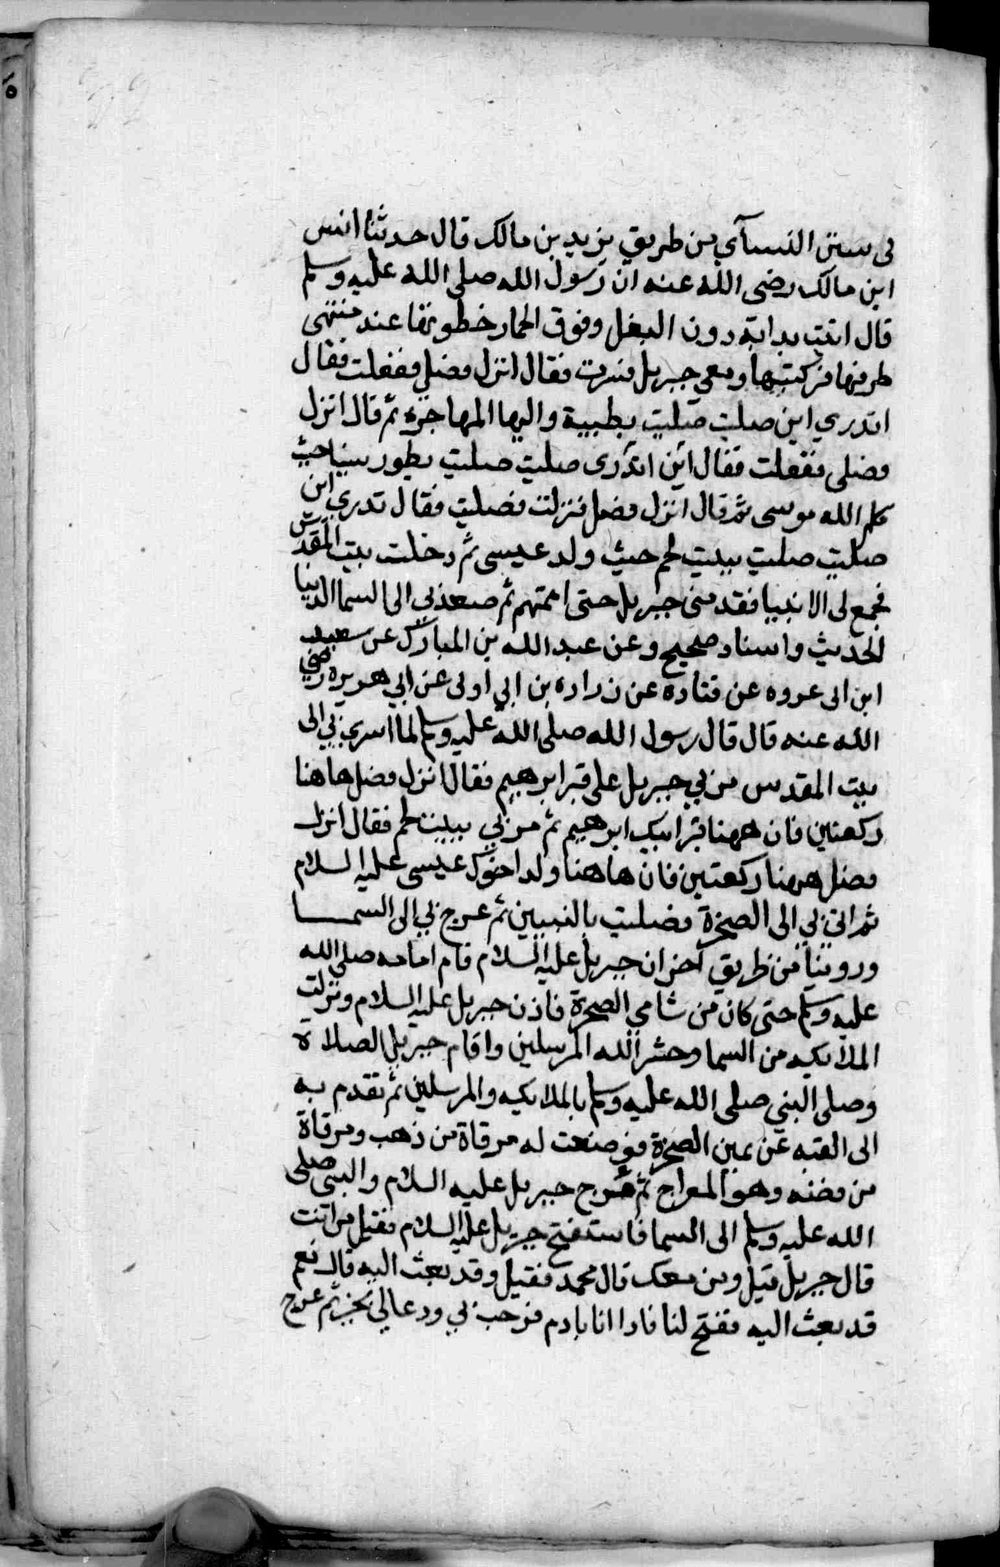 في سنن النسآي من طريق يزيد بن مالك قال حدثنا انس
ابن مالك رضي الله عنه ان رسول الله صلى الله عليه وسلم
قال اتيت بدابة دون البغل وفوق الحمار خطوتها عند منتهى
طرفها فركبتها ومعي جبريل فسرت فقال انزل فصلي ففعلت فقال
اتدري اين صليت صليت بطيبة واليها المهاجره ثم قال انزل
فصلى ففعلت فقال اين اتدرى صليت صليت بطور سينا حيث
كلم الله موسى ثم قال انزل فصل فنزلت فصليت فقال تدري اين
صليت صليت ببيت لحم حيث ولد عيسى ثم دخلت بيت المقدس
فجمع لى الانبيا فقدمنى جبريل حتى اممتهم ثم صعد بي الى السما الدنيا
الحديث واسناد صحيح وعن عبد الله بن المبارك عن سعيد
ابن ابى عروه عن قتاده عن زراره بن ابي اوفى عن ابي هريره رضي
الله عنه قال قال رسول الله صلى الله عليه وسلم لما اسري بي الى
بيت المقدس مر بي جبريل على قبر ابرهيم فقال انزل فصل هاهنا
ركعتين فان ههنا قبر ابيك ابرهيم ثم مر بي ببيت لحم فقال انزل
فصل ههنا ركعتين فان هاهنا ولد اخوك عيسى عليه السلام
ثم اتى بي الى الصخرة فصليت بالنبيين ثم عرج بي الى السما
وروينا من طريق آخر ان جبريل عليه السلام قام امامه صلى الله
عليه وسلم حتى كان من شامي الصخرة فاذن جبريل عليه السلام ونزلت
الملايكه من السما وحشر الله المرسلين واقام جبريل الصلاة
وصلى النبي صلى الله عليه وسلم بالملايكه والمرسلين ثم تقدم به
الى القبه عن يمين الصخرة فوضعت له مرقاة من ذهب ومرقاة
من فضه وهو المعراج ثم عرج جبريل عليه السلام والنبي صلى
الله عليه وسلم الى السما فاستفتح جبريل عليه السلام فقيل من انت
قال جبريل قيل ومن معك قال محمد فقيل وقد بعث اليه قال نعم
قد بعث اليه ففتح لنا فاذا انا بادم فرحب بي ودعا لي بخير ثم عرج